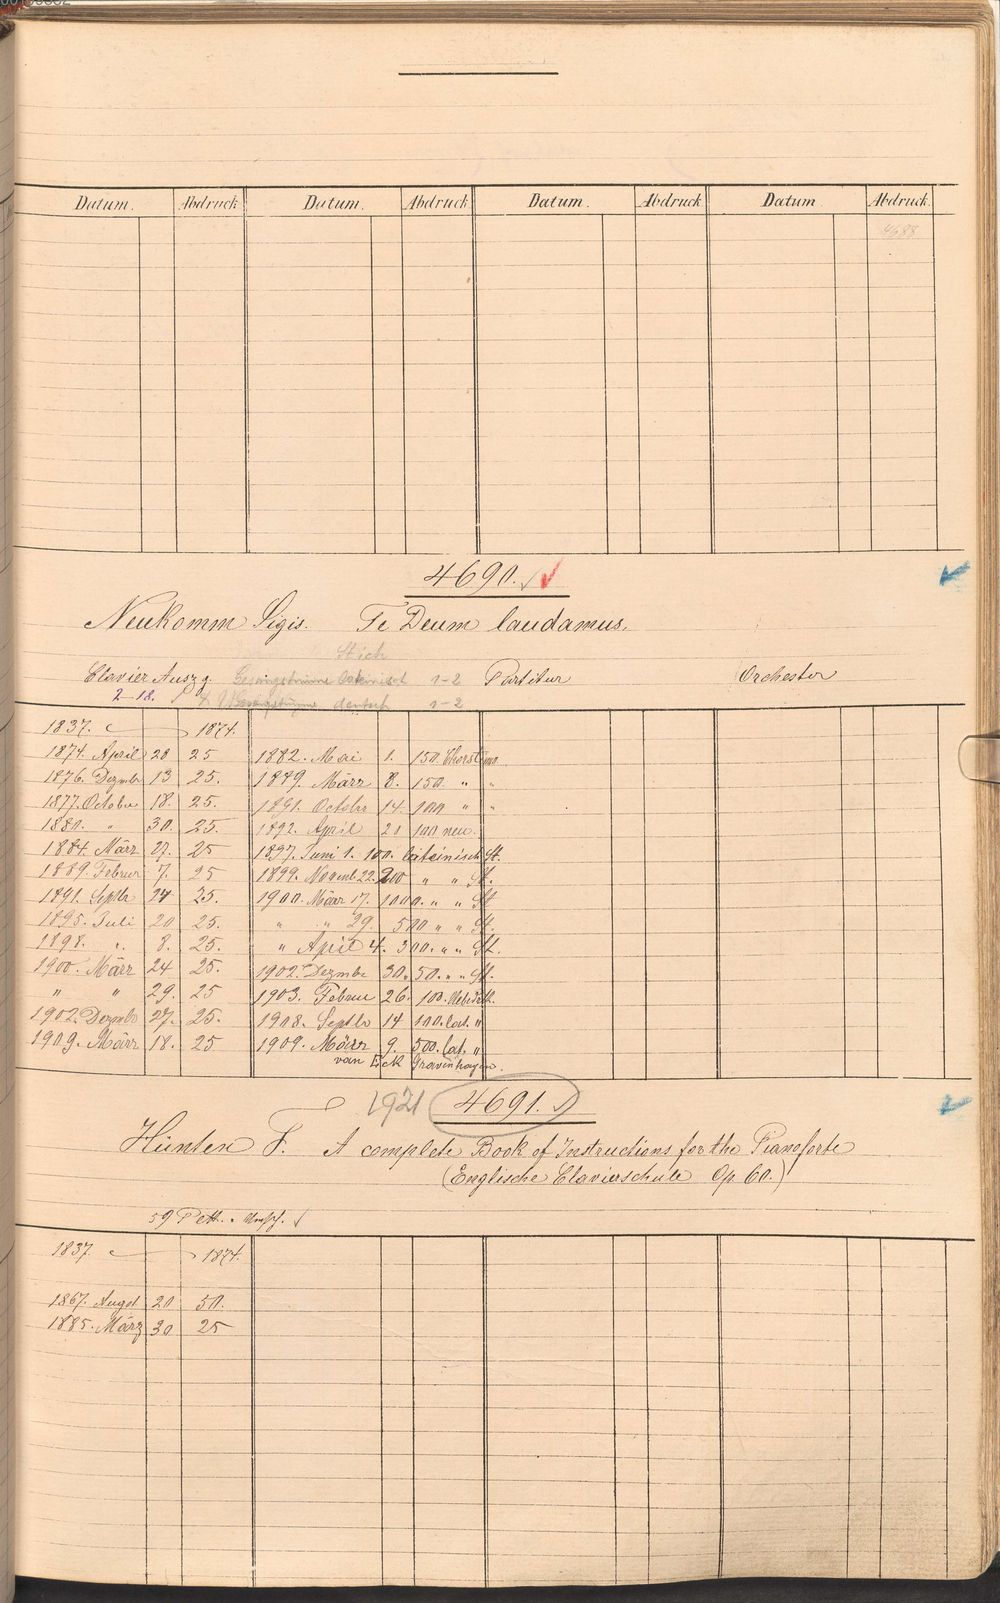 Datum. Abdruck Datum. Abdruck Datum. Abdruck Datum Abdruck.
4688
4690.
Neukomm Sigis. Te Deum laudamus.
Stich
Clavier Auszg. Gesangstimme Lateinisch 1-2 Partitur Orchester
2-18. deutsch 1-2
1837. 1874.
1874. April 28 25 1882. Mai 1. 150. Chorstimm
1876. Dezmbr 13 25. 1889. März 8. 150. " "
1877. October 18. 25. 1891. Octobr 14 100 " "
1880. " 30. 25. 1892. April 20 100 neu.
1884. März 27. 25 1897. Juni 1. 100. lateinisch St.
1889. Februr 7. 25 1899. Novemb 22. 200 " " St.
1891. Septbr 24 25. 1900. März 17. 1000. " " St
1895. Juli 20 25. " " 29. 500 " " St.
1898. " 8. 25. " April 4. 300. " " St.
1900. März 24 25. 1902. Dezmbr 30. 50. " " St.
" " 29. 25 1903. Februr 26. 100.
1902. Dezmbr 27. 25. 1908. Septbr 14 100. lat. "
1909. März 18. 25 1909. März 9. 500. lat. "
van Eck Gravenhagen.
1921 4691.
Hünten F. A complete Book of Instructions for the Pianoforte
(Englische Clavierschule Op. 60.)
59 Plett. Umsch.
1837. 1874.
1867. Augst 20 50.
1885. März 30 25